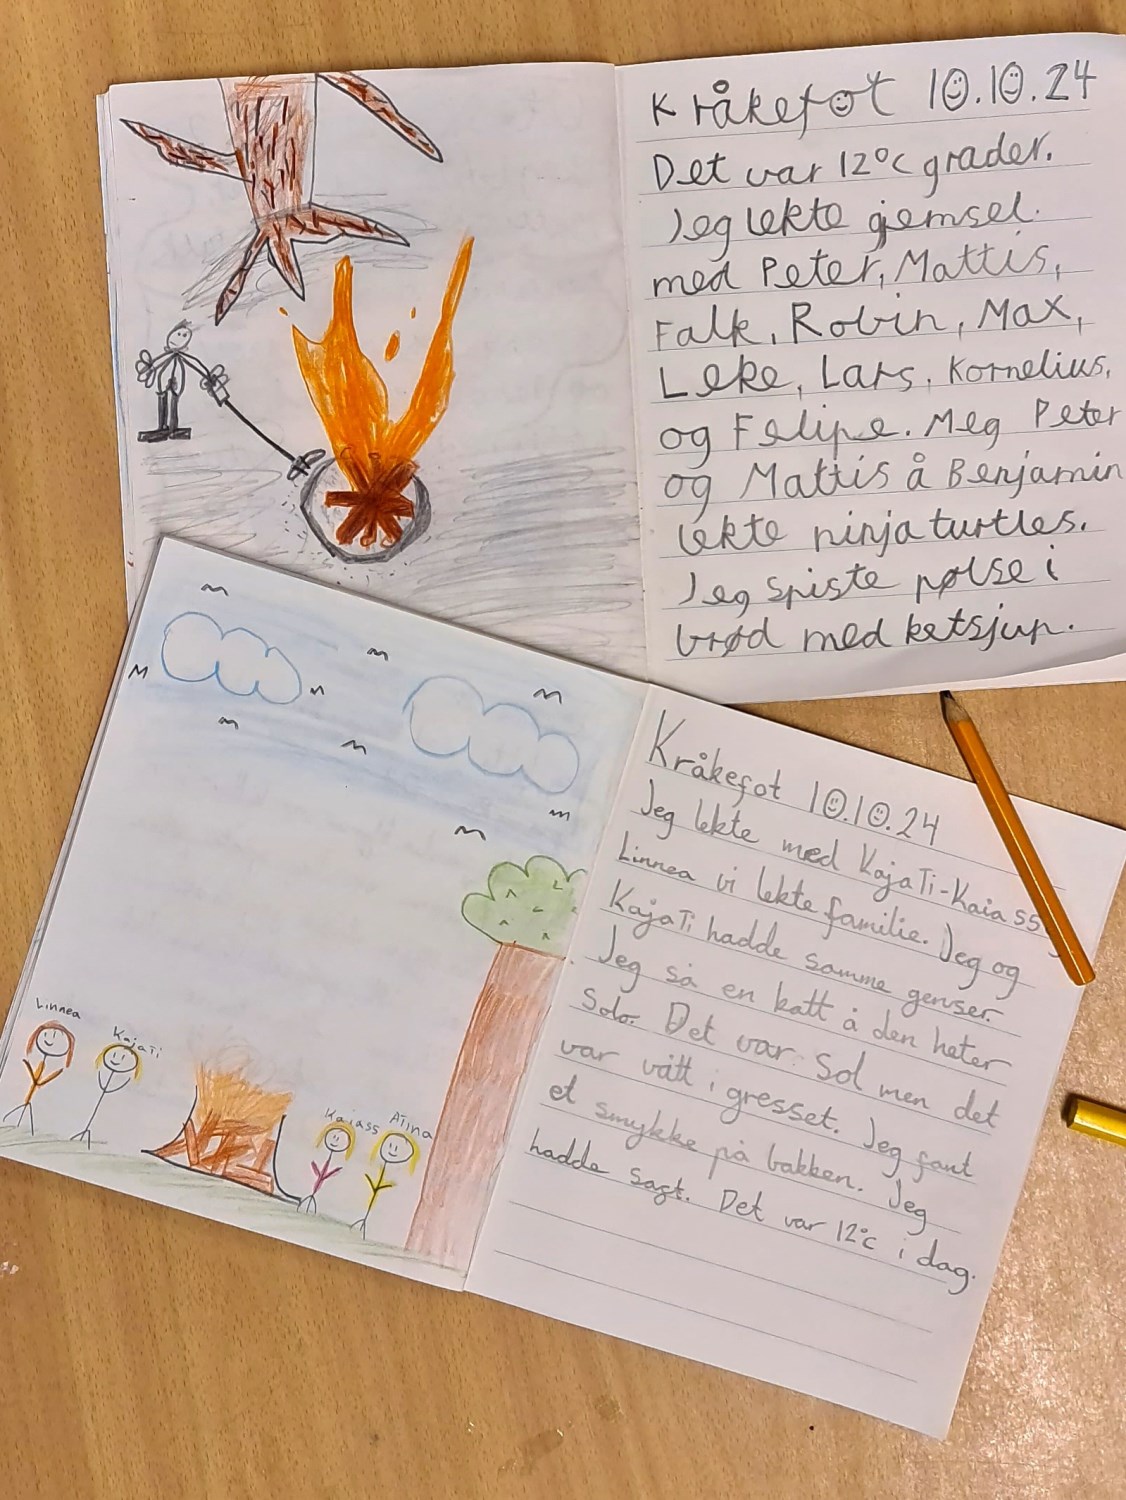 Kråkefot 10.10.24
Det var 12°C grader.
Jeg lekte gjemsel.
med Peter, Mattis,
Falk, Robin, Max,
Leke, Lars, Kornelius,
og Felipe. Meg Peter
og Mattis å Benjamin
lekte ninja turtles.
Jeg spiste pølse i
brød med ketsjup.
Kråkefot 10.10.24
Jeg lekte med KajaTi-Kaiass
Linnea vi lekte familie. Jeg og
KajaTi hadde samme genser.
Jeg så en katt å den heter
Solo. Det var Sol men det
var vått i gresset. Jeg fant
et smykke på bakken. Jeg
hadde sagt. Det var 12°c i dag.
Linnea
KajaTi
Kaiass
Alina